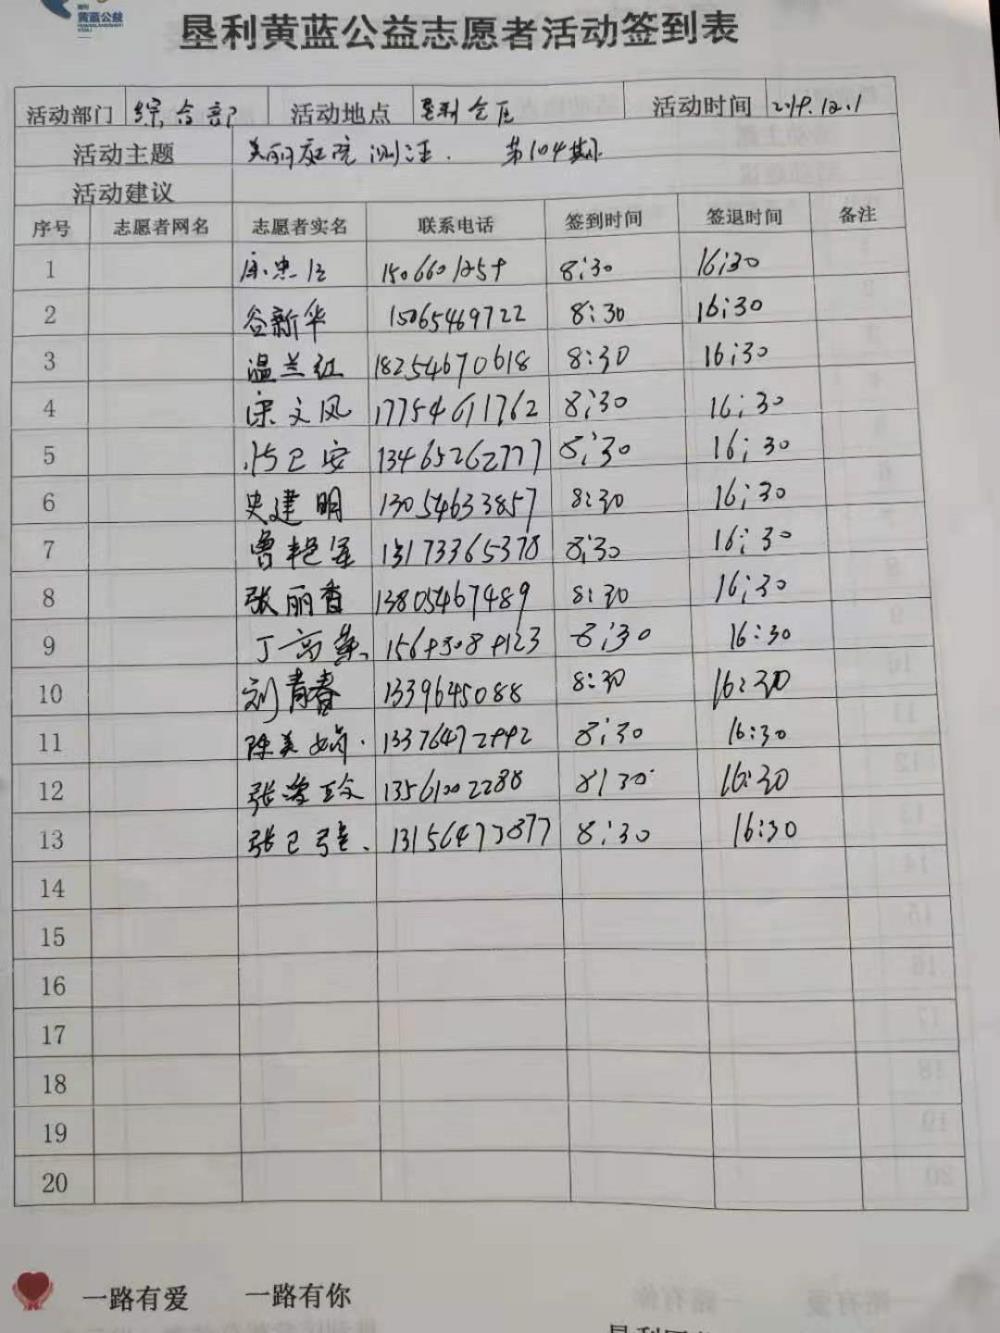 黄蓝公益
垦利黄蓝公益志愿者活动签到表
活动部门 综合部 活动地点 垦利全区 活动时间 2019.12.1
活动主题 美丽庭院测评. 第104期
活动建议
序号 志愿者网名 志愿者实名 联系电话 签到时间 签退时间 备注
1 8:30 16:30
2 谷新华 15065469722 8:30 16:30
3 温兰红 18254670618 8:30 16:30
4 宋文风 17754611762 8:30 16:30
5 13465262777 8:30 16:30
6 史建明 13054633857 8:30 16:30
7 曹艳军 13173365378 8:30 16:30
8 张丽香 13805467489 8:30 16:30
9 8:30 16:30
10 刘青春 1339645088 8:30 16:30
11 陈美娟 8:30 16:30
12 13561002288 8:30 16:30
13 8:30 16:30
14
15
16
17
18
19
20
一路有爱 一路有你